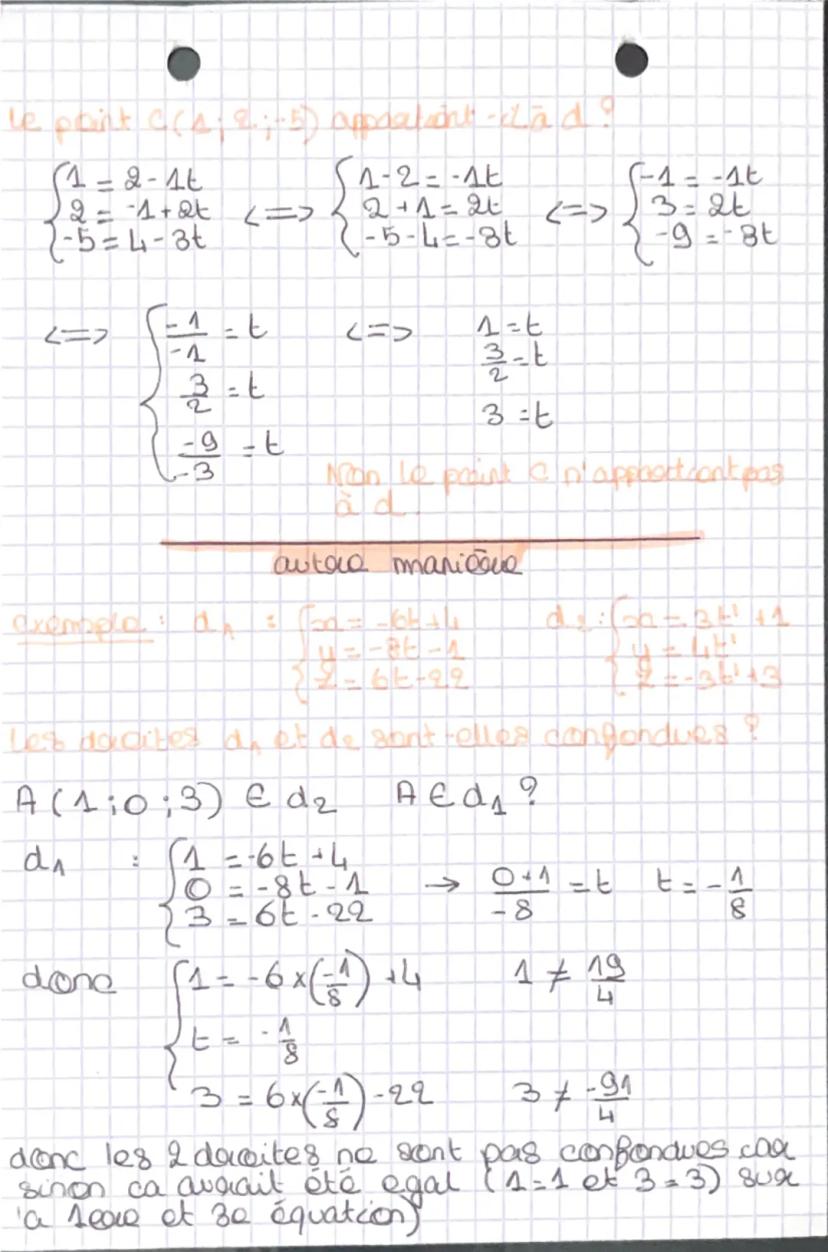 Le point C(1;2;-5) appartient-il à d ?
{1 = 2 - 1t <=> {1-2 = -1t <=> {-1 = -1t
{2 = -1+2t {2+1 = 2t {3 = 2t
{-5 = 4 - 3t {-5-4 = -3t {-9 = -3t
<=> {-1/-1 = t <=> 1 = t
{3/2 = t 3/2 = t
{-9/-3 = t 3 = t
Non le point C n'appartient pas
à d.
autre manière
exemple : d1 : {x = -6t+4 d2 : {x = 3t'+1
{y = -8t-1 {y = 4t'
{z = 6t-22 {z = -3t'+3
Les droites d1 et d2 sont-elles confondues ?
A(1;0;3) ∈ d2 A ∈ d1 ?
d1 : {1 = -6t+4
{0 = -8t-1 → 0+1/-8 = t t = -1/8
{3 = 6t-22
donc {1 = -6×(-1/8)+4 1 ≠ 19/4
{t = -1/8
{3 = 6×(-1/8)-22 3 ≠ -91/4
donc les 2 droites ne sont pas confondues car
sinon ca aurait été egal (1=1 et 3=3) sur
'a 1ere et 3e équation)